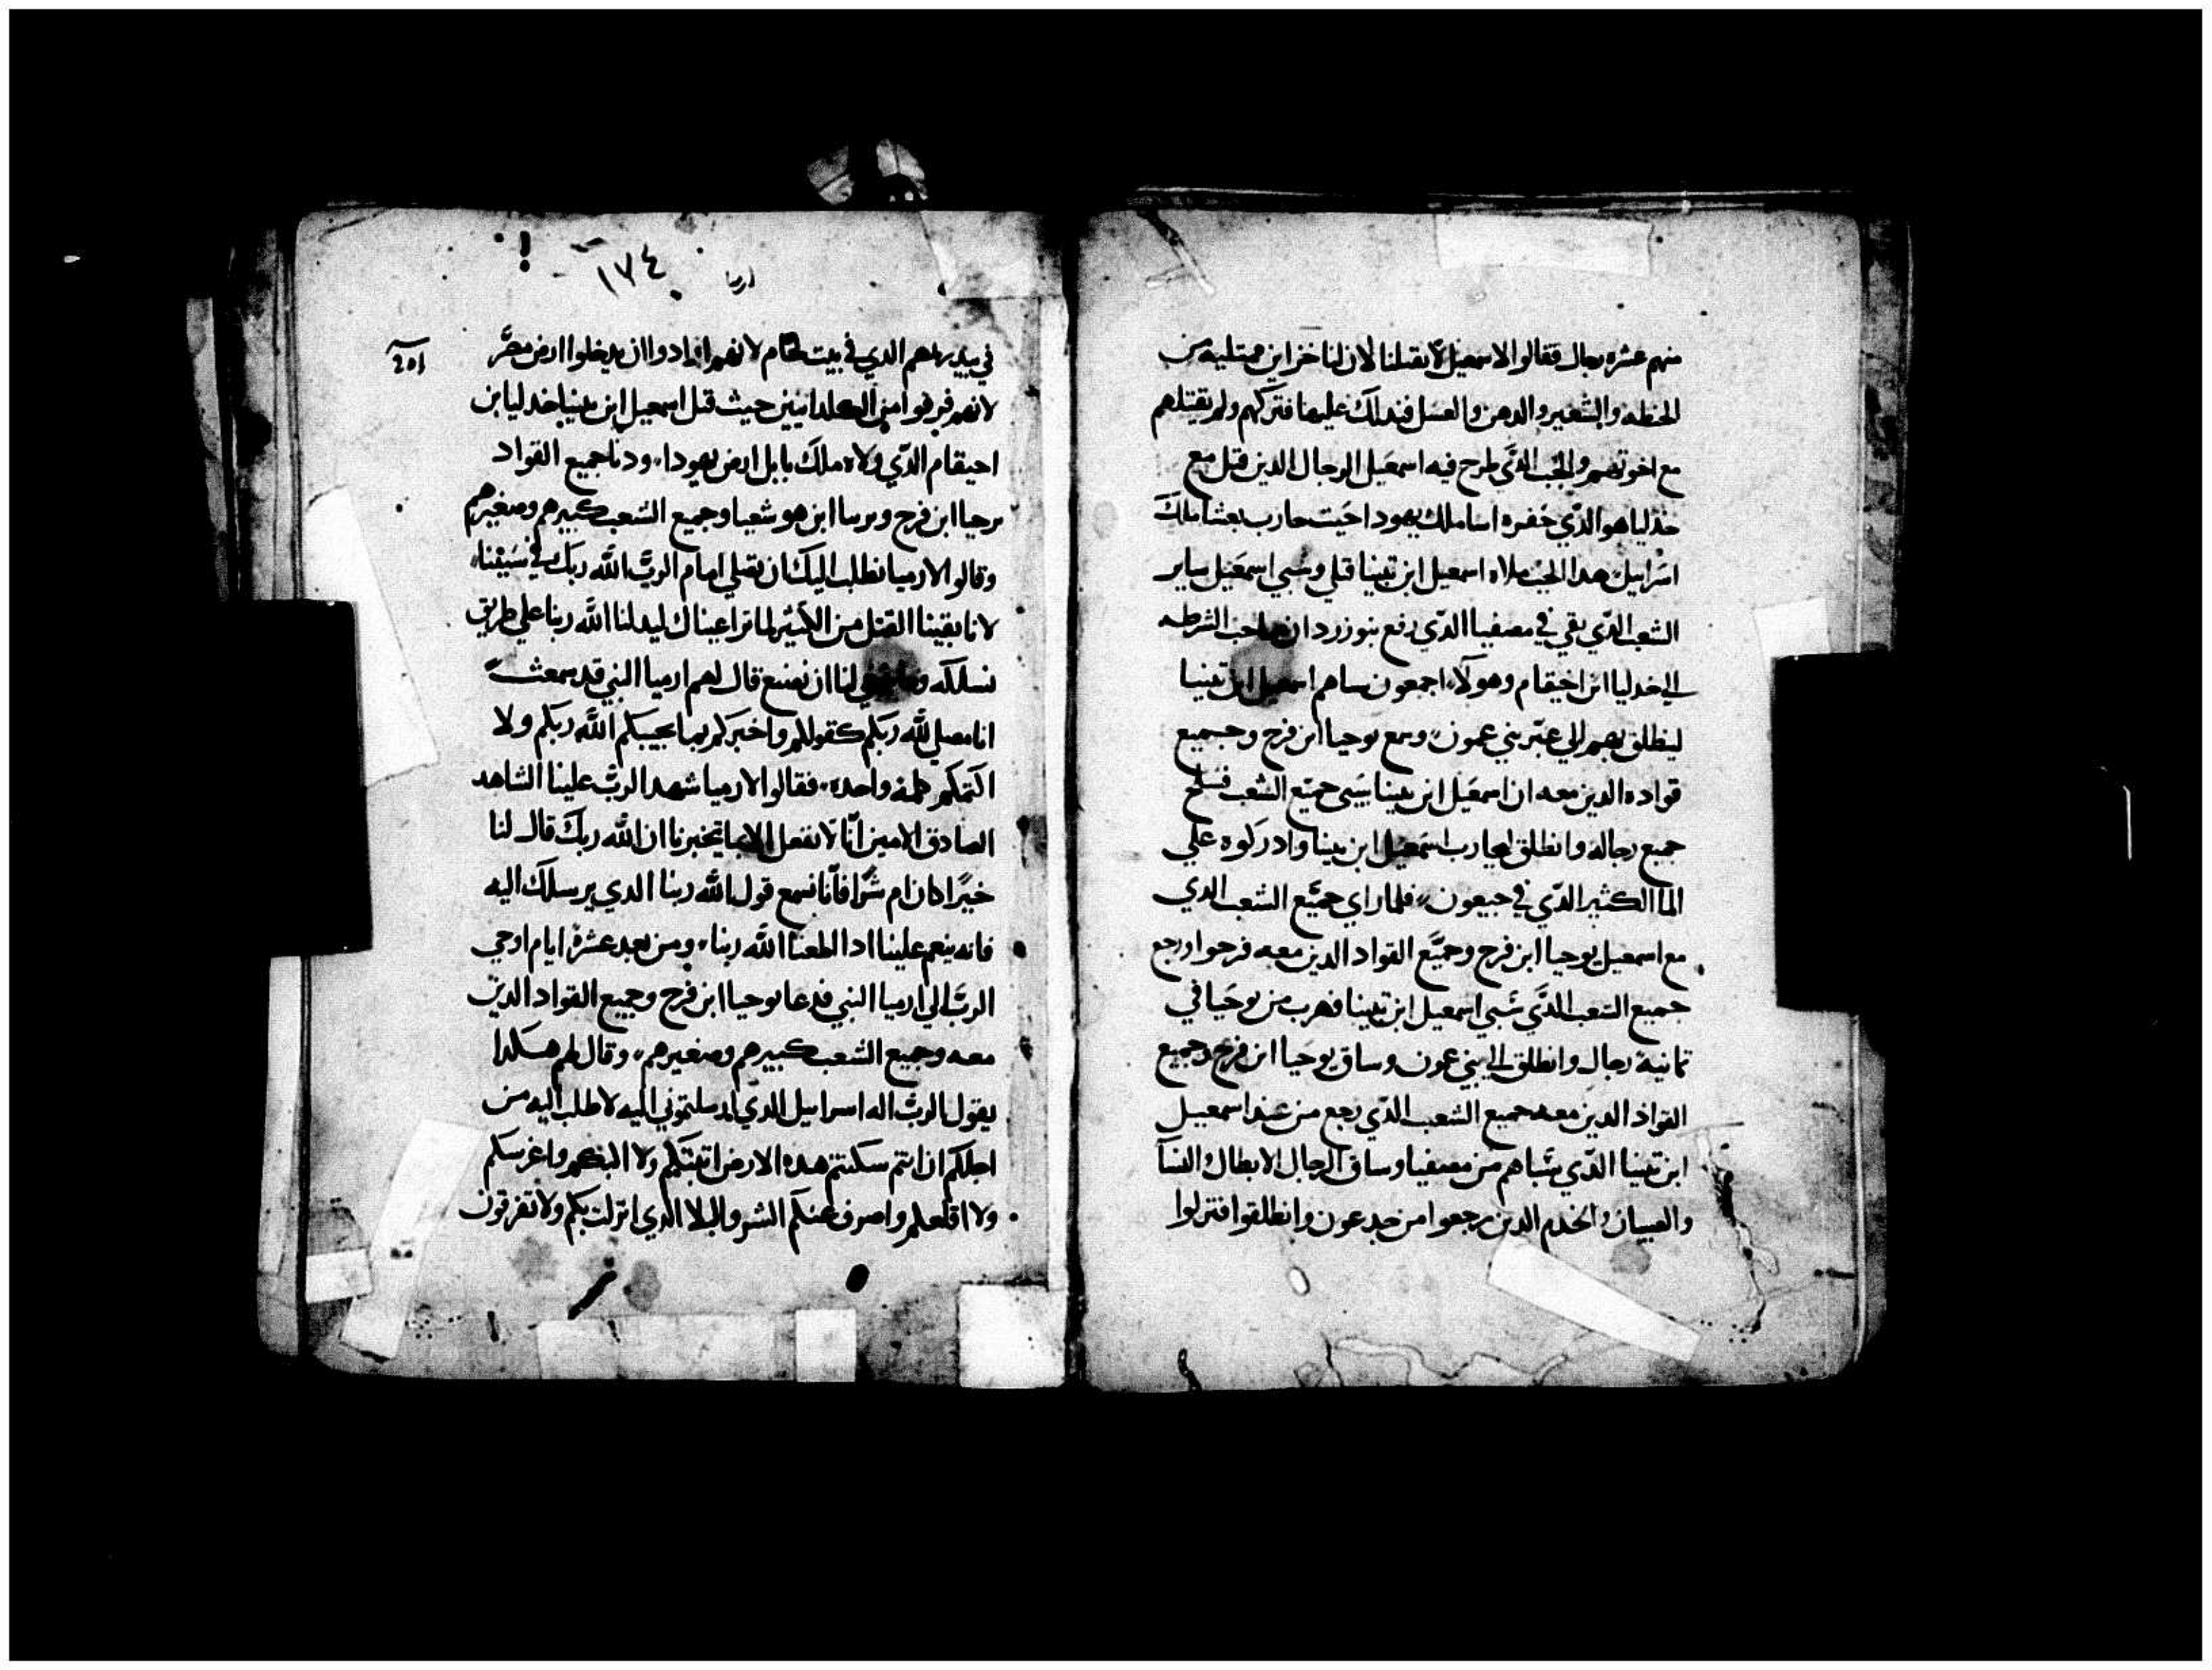 منهم عشره رجال فقالوا لاسمعيل لا تقتلنا لان لنا خزاين ممتليه من
الحنطه والشعير والدهن والعسل فندلك عليها فتركهم ولم يقتلهم
مع اخوتهم والجب الذي طرح فيه اسمعيل الرجال الدين قتل مع
خدليا هو الدي حفره اسا ملك يهودا حيت حارب بعشا ملك
اسراييل هدا الجب ملاه اسمعيل ابن تنيا قتلي وسبي اسمعيل ساير
الشعب الدي بقي في مصفيا الدي رفع بنوزردان صاحب الشرطه
الي خدليا ابن اخيقام وهولاء اجمعون ساهم اسمعيل ابن تينيا
لينطلق بهم الي عبر بني عمون وسمع يوحيا ابن فرح وجميع
قواده الدين معه ان اسمعيل ابن تنيا سبي جميع الشعب فسلح
جميع رجاله وانطلق ليحارب اسمعيل ابن تينيا وادركوه علي
الما الكثير الدي في جبعون فلما راي جميع الشعب الدي
مع اسمعيل يوحيا ابن فرح وجميع القواد الدين معه فرحوا ورجع
جميع الشعب الدي سبي اسمعيل ابن تينيا فهرب من يوحيا في
تمانية رجال وانطلق الي بني عمون وساق يوحيا ابن فرح وجميع
القواد الدين معه جميع الشعب الدي رجع من عند اسمعيل
ابن تينيا الدي سباهم من مصفيا وساق الرجال الابطال النسا
والصبيان والخدم الدين رجعوا من جبعون وانطلقوا فنزلوا
١٧٤
ارميا
في الدي في بيت لحام لانهم ارادوا ان يدخلوا ارض مصر
لانهم فرقوا من الكلدانيين حيث قتل اسمعيل ابن تينيا خدليا بن
احيقام الدي ولاه ملك بابل ارض يهودا ودنا جميع القواد
ابن فرح ابن هوشعيا وجميع الشعب كبيرهم وصغيرهم
وقالوا لارميا نطلب اليك ان تصلي امام الرب الله ربك في سبينا
لانا بقينا القليل من الكثير لما ترا عيناك ليدلنا الله ربنا علي طريق
نسلكه لنا ان نصنع قال لهم ارميا النبي قد سمعت
انا مصلي لله ربكم كقولكم واخبركم بما يجيبكم الله ربكم ولا
اكتمكم كلمه واحده فقالوا لارميا شهد الرب علينا الشاهد
الصادق الامين انا لا نفعل الا بما تخبرنا ان الله ربك قال لنا
خيرا كان ام شرا فانا نسمع قول الله ربنا الدي يرسلك اليه
فانه ينعم علينا ادا اطعنا الله ربنا ومن بعد عشرة ايام اوحي
الرب الي ارميا النبي فدعا يوحيا ابن فرح وجميع القواد الدين
معه وجميع الشعب كبيرهم وصغيرهم وقال لهم هكدا
يقول الرب اله اسراييل الدي ارسلتموني اليه لاطلب اليه من
اجلكم ان انتم سكنتم هده الارض ولا واغرسكم
ولا اقلعكم واصرف عنكم الشر والبلا الدي انزلت بكم ولا تفزقون